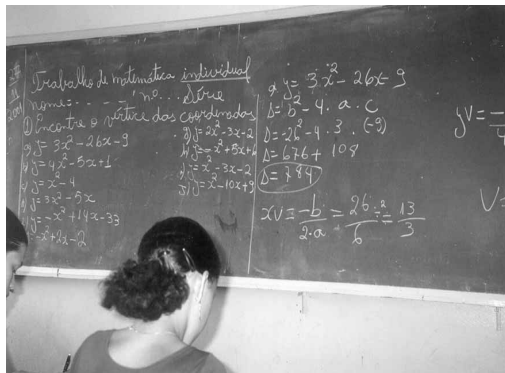 Trabalho de matemática individual
nome=- - - - nº... Série
① Encontre o vértice das coordenadas
y= 3x²-26x-9
y= 4x²-5x+1
y=x²-4
y=3x²-5x
y=-x²+14x-33
-x²+2x-2
g) y=2x²-3x-2
h) y=-x²+5x+6
y=x²-3x-2
y=x²-10x+9
a) y= 3x²-26x-9
Δ= b²-4.a.c
Δ=-26²-4.3.(-9)
Δ=676+108
Δ=784
xv= -b/2.a = 26÷2/6 = 13/3
yv= -